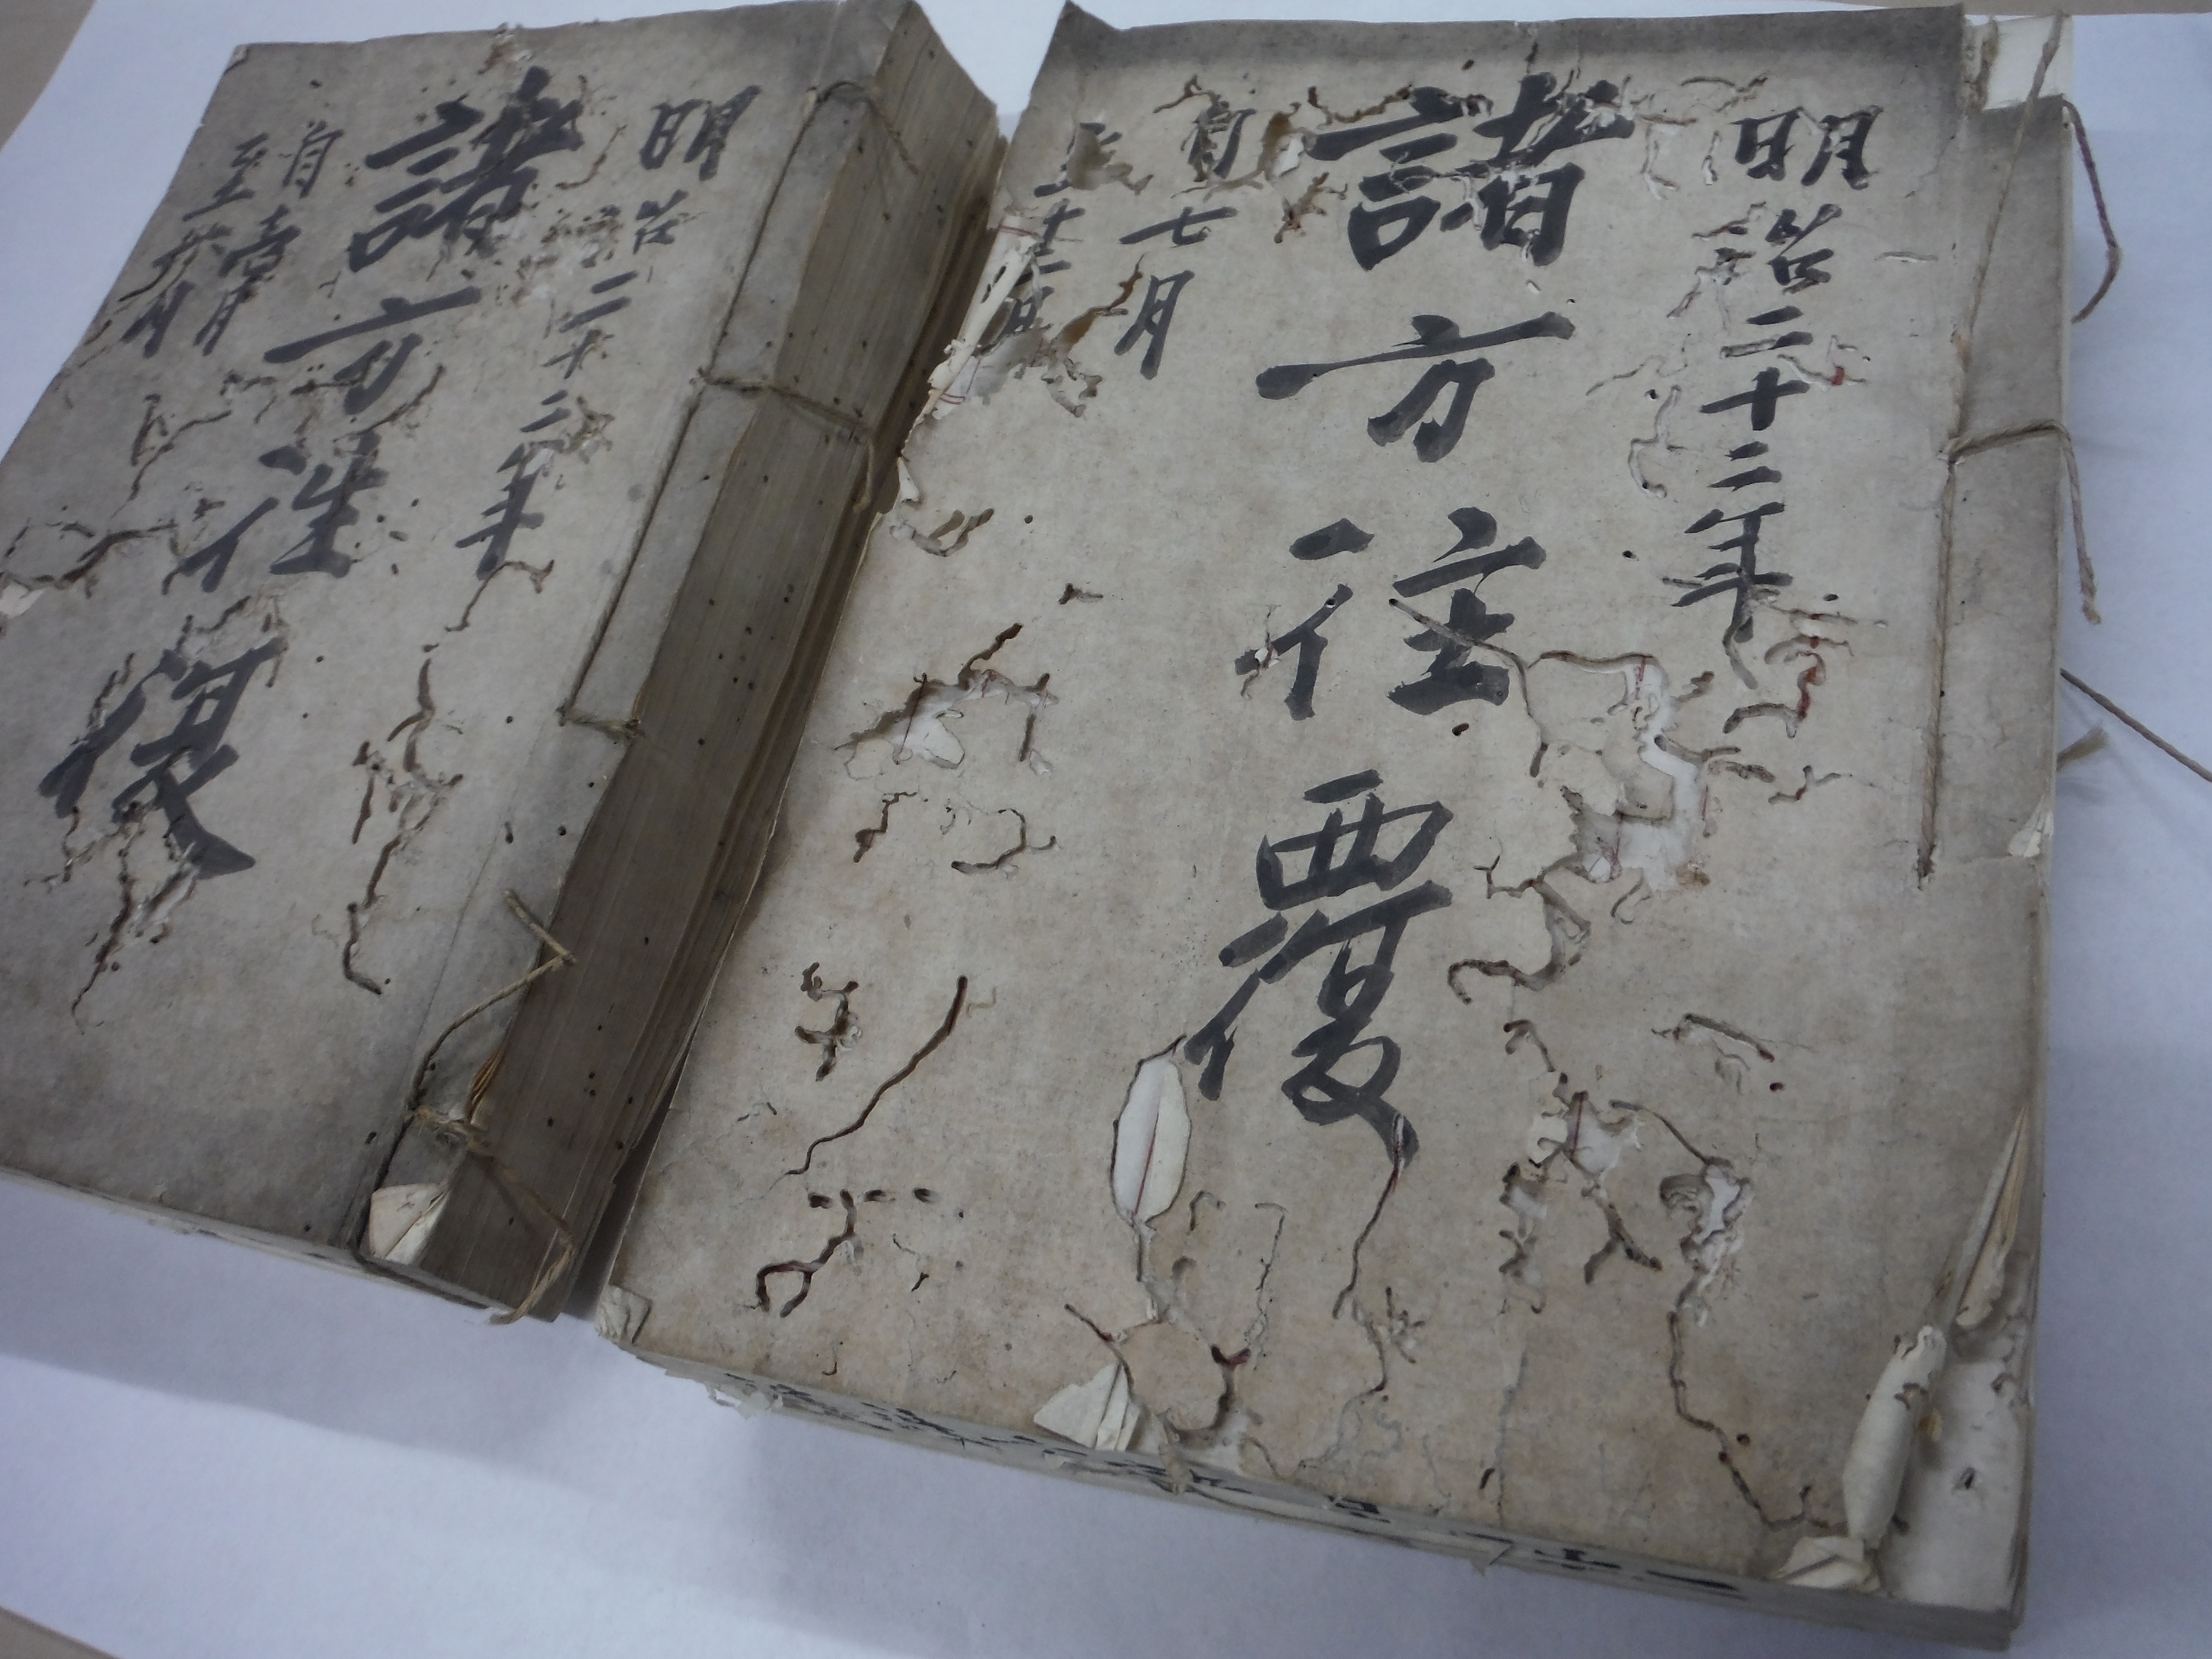 明治二十二年
諸方往覆
自七月
至十二月
明治二十二年
諸方往復
自壱月
至六月